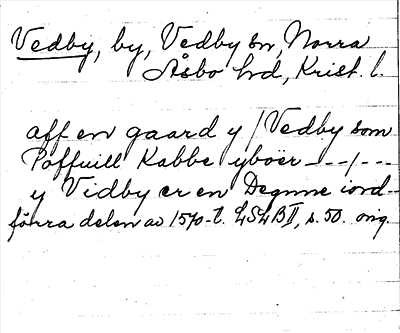 Vedby, by, Vedby sn, Norra
Åsbo hd, Krist. l.
aff en gaard y / Vedby som
Poffuill Kabbe yboër - - - / - - -
y Vidby er en Degnne iord
förra delen av 1570-t. LSLB II, s. 50. orig.